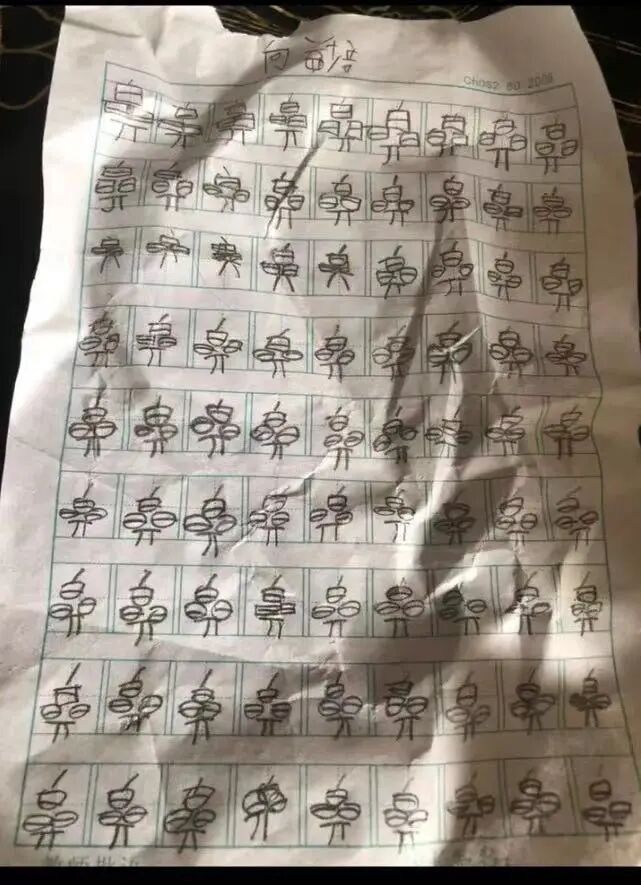 向
鼻鼻鼻鼻鼻鼻鼻鼻鼻
鼻鼻鼻鼻鼻鼻鼻鼻鼻
鼻鼻鼻鼻鼻鼻鼻鼻鼻
鼻鼻鼻鼻鼻鼻鼻鼻鼻
鼻鼻鼻鼻鼻鼻鼻鼻鼻
鼻鼻鼻鼻鼻鼻鼻鼻鼻
鼻鼻鼻鼻鼻鼻鼻鼻鼻
鼻鼻鼻鼻鼻鼻鼻鼻鼻
鼻鼻鼻鼻鼻鼻鼻鼻鼻